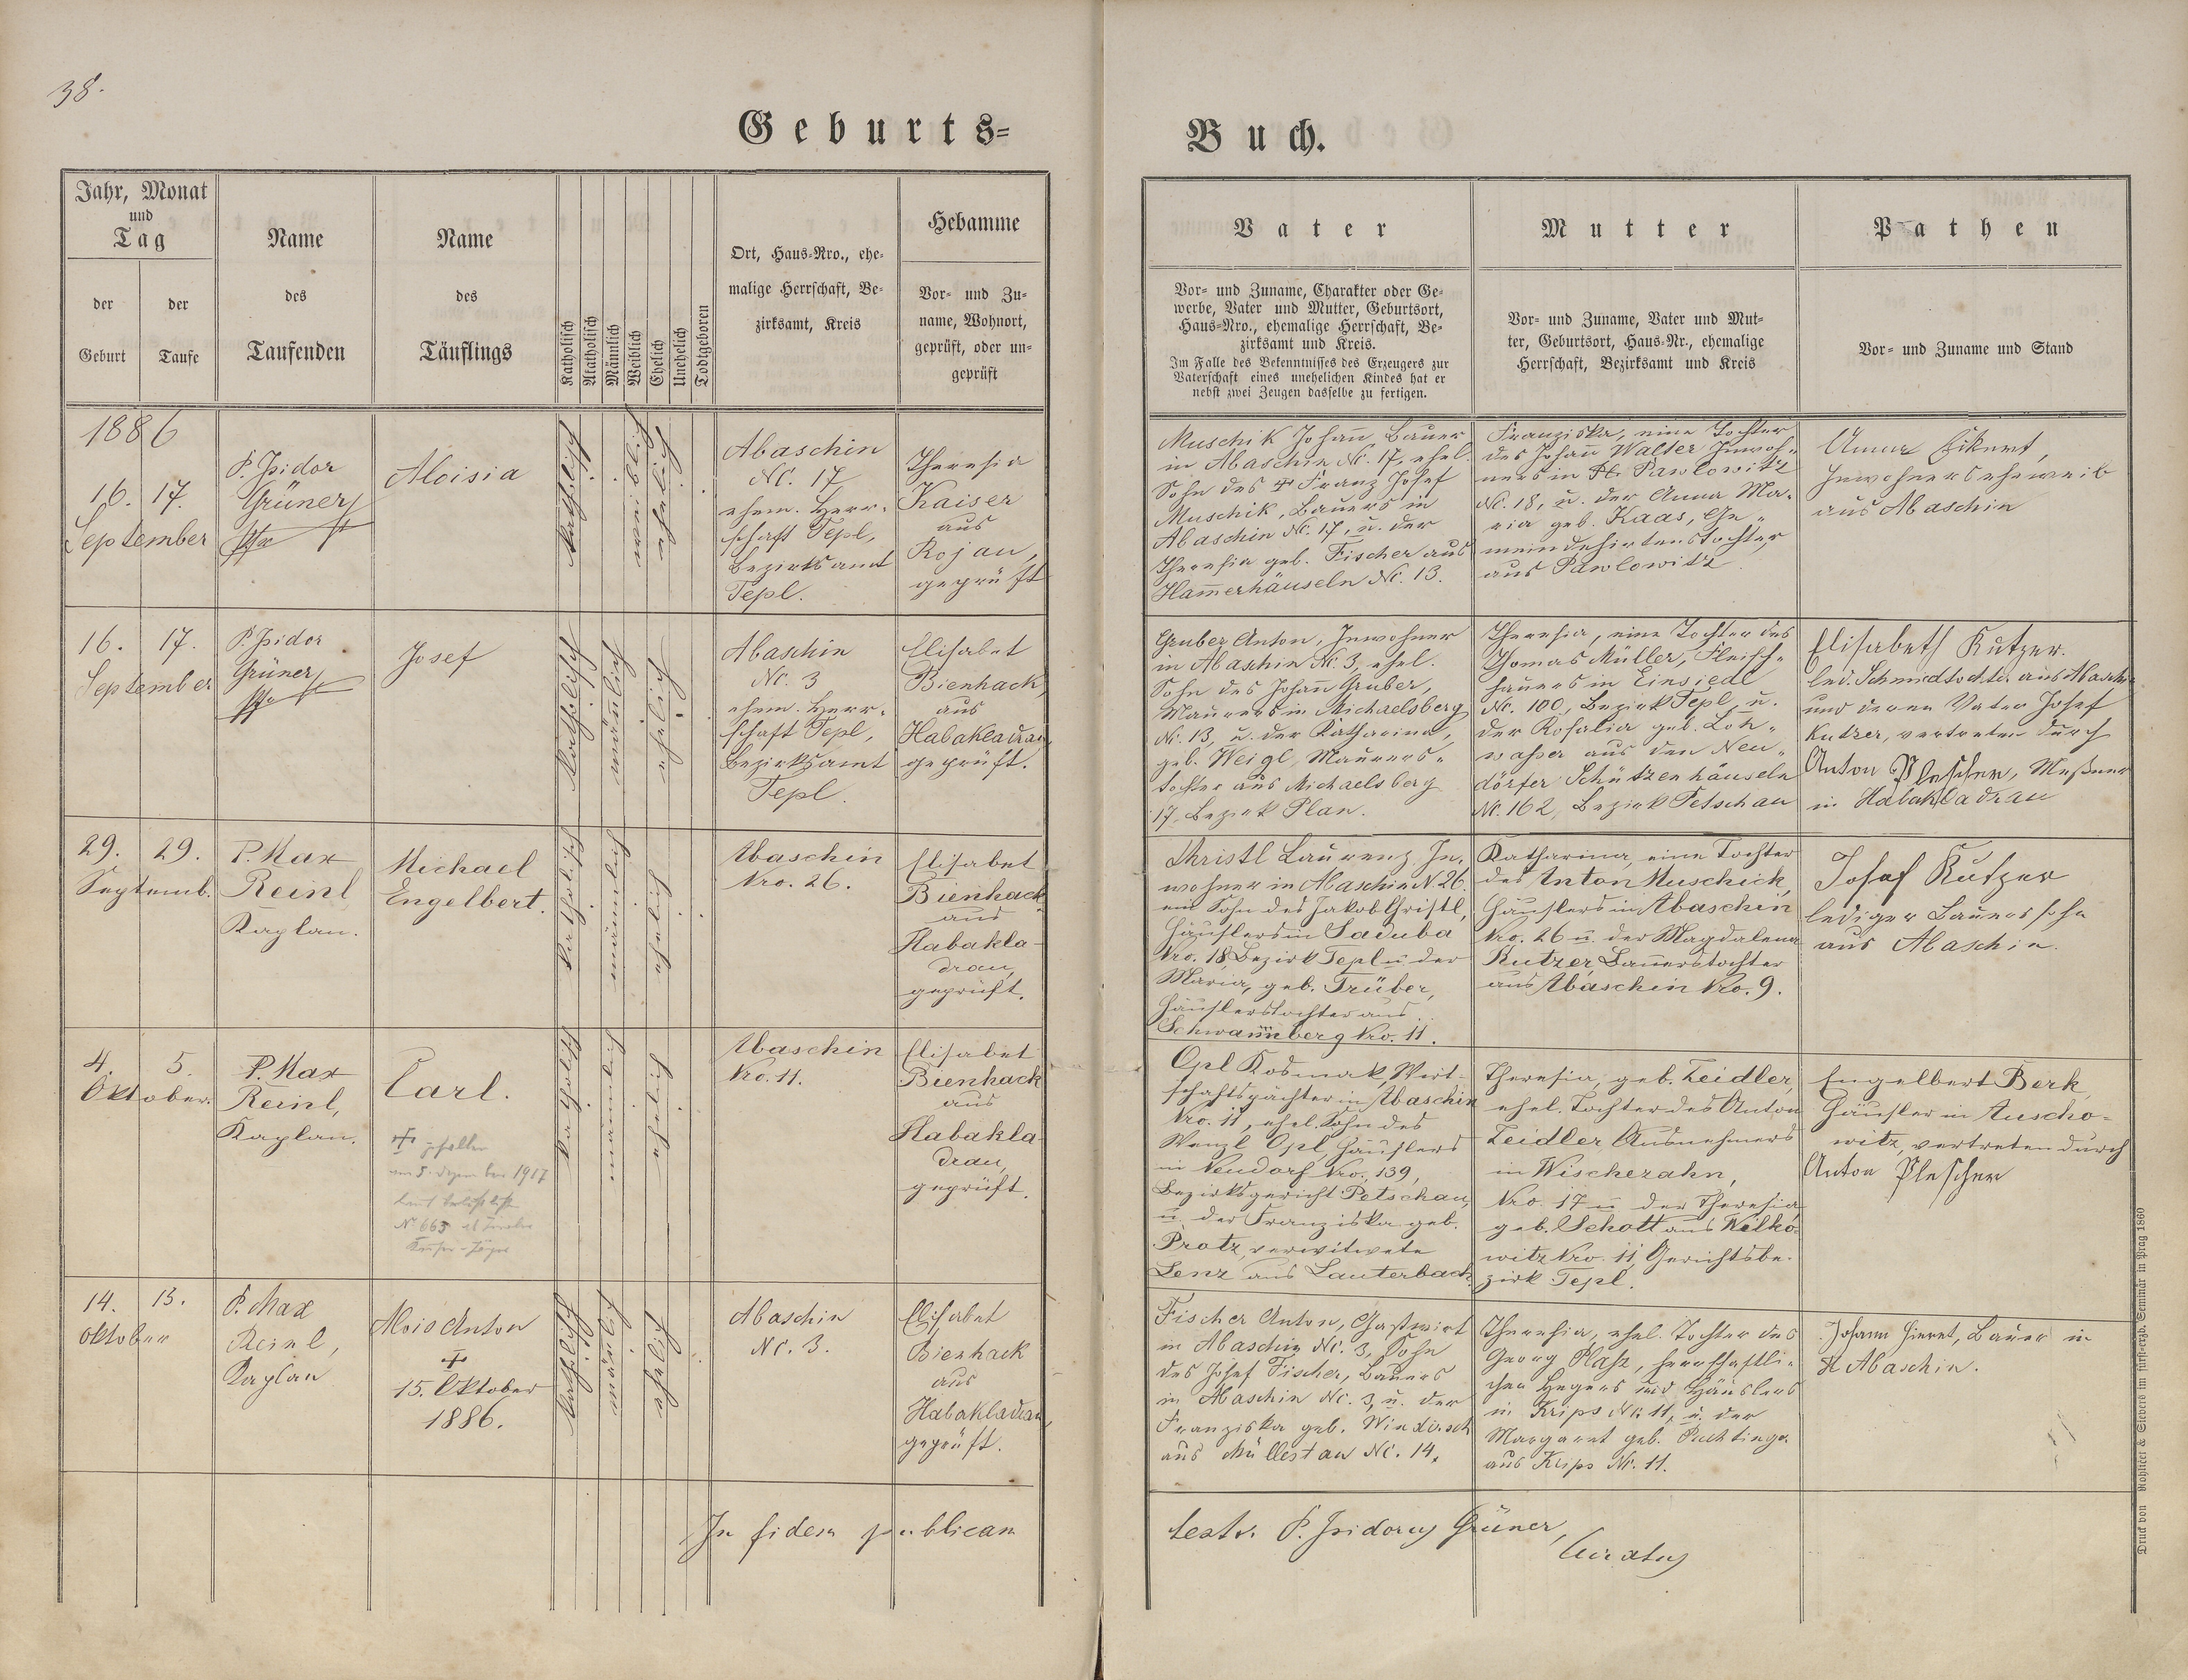 38.
Geburts-
Buch.
Jahr, Monat
und
Tag
der
Geburt
der
Taufe
Name
des
Taufenden
Name
des
Täuflings
Katholisch
Akatholisch
Männlich
Weiblich
Ehelich
Unehelich
Todtgeboren
Ort, Haus-Nro., ehe-
malige Herrschaft, Be-
zirksamt, Kreis
Hebamme
Vor- und Zu-
name, Wohnort,
geprüft, oder un-
geprüft
Vater
Vor- und Zuname, Charakter oder Ge-
werbe, Vater und Mutter, Geburtsort,
Haus-Nro., ehemalige Herrschaft, Be-
zirksamt und Kreis.
Im Falle des Bekenntnisses des Erzeugers zur
Vaterschaft eines unehelichen Kindes hat er
nebst zwei Zeugen dasselbe zu fertigen.
Mutter
Vor- und Zuname, Vater und Mut-
ter, Geburtsort, Haus-Nr., ehemalige
Herrschaft, Bezirksamt und Kreis
Pathen
Vor- und Zuname und Stand
1886
16. 17.
September
P. Isidor
Grüner
Aloisia
katholisch
weiblich
ehelich
Abaschin
Nč. 17
ehem. Herr-
schaft Tepl,
Bezirksamt
Tepl.
Theresia
Kaiser
aus
Rojau,
geprüft
Muschik Johañ, Bauer
in Abaschin Nč. 17, ehel.
Sohn des † Franz Josef
Muschik, Bauers in
Abaschin Nč. 17, u. der
Theresia geb. Fischer aus
Ham̄erhäuseln Nč. 13.
Franziska, eine Tochter
des Johañ Walter Inwoh-
ners in Pawlowitz
Nč. 18, u. der Anna Ma-
ria geb. Kaas, Ge-
meindehirtenstochter
aus Pawlowitz
Anna Eckert,
Inwohnerseheweib
aus Abaschin
16. 17.
September
P. Isidor
Grüner
Josef
katholisch
mäñlich
ehelich
Abaschin
Nč. 3
ehem. Herr-
schaft Tepl,
Bezirksamt
Tepl.
Elisabet
Bienhack
aus
Habakladrau,
geprüft.
Gruber Anton, Inwohner
in Abaschin Nč. 3, ehel.
Sohn des Johañ Gruber,
Maurers in Michaelsberg
Nč. 13, u. der Katharina,
geb. Weigl, Maurers-
tochter aus Michaelsberg
17. Bezirk Plan.
Theresia, eine Tochter des
Thomas Müller, Fleisch-
hauers in Einsiedl
Nč. 100, Bezirk Tepl, u.
der Rosalia geb. Loh-
waßer aus den Neu-
dörfer Schützenhäuseln
Nč. 162, Bezirk Petschau
Elisabeth Kutzer.
led. Schmiedtocht. aus Abaschin
und deren Vater Josef
Kutzer, vertreten durch
Anton Plescher, Meßner
in Habakladrau
29. 29.
Septemb.
P. Max
Reinl
Kaplan.
Michael
Engelbert.
katholisch
männlich
ehelich
Abaschin
Nro. 26.
Elisabet
Bienhack
aus
Habakla-
drau,
geprüft.
Christl Laurenz, In-
wohner in Abaschin N. 26.
ein Sohn des Jakob Christl,
Häuslers in Saduba
Nro. 18, Bezirk Tepl u. der
Maria, geb. Trüber,
Häuslerstochter aus
Schwam̄berg Nro. 11.
Katharina, eine Tochter
des Anton Muschick,
Häuslers in Abaschin
Nro. 26 u. der Magdalena
Kutzer, Bauerstochter
aus Abaschin Nro. 9.
Josef Kutzer
lediger Bauerssohn
aus Abaschin.
4. 5.
Oktober.
P. Max
Reinl,
Kaplan.
Carl.
† gefallen
am 8. Dezember 1917
laut Verlustliste
Nº 665
Kaiser-Jäger
katholisch
männlich
ehelich
Abaschin
Nro. 11.
Elisabet
Bienhack
aus
Habakla-
drau,
geprüft.
Opl Kosmak, Wirt-
schaftspächter in Abaschin
Nro. 11, ehel. Sohn des
Wenzl Opl, Häuslers
in Neudorf Nro. 139,
Bezirksgericht Petschau,
u. der Franziska geb.
Protz, verwitwete
Lenz aus Lauterbach.
Theresia, geb. Zeidler,
ehel. Tochter des Anton
Zeidler, Ausnehmers
in Wischezahn,
Nro. 17 u. der Theresia
geb. Schott aus Wilko-
witz Nro. 11, Gerichtsbe-
zirk Tepl.
Engelbert Berk,
Häusler in Auscho-
witz, vertreten durch
Anton Plescher
14. 15.
Oktober
P. Max
Reinl,
Kaplan
Alois Anton
†
15. Oktober
1886.
katholisch
mäñlich
ehelich
Abaschin
Nč. 3.
Elisabet
Bienhack
aus
Habakladrau,
geprüft.
Fischer Anton, Gastwirt
in Abaschin Nč. 3, Sohn
des Josef Fischer, Bauers
in Abaschin Nč. 3, u. der
Franziska geb. Windirsch
aus Müllestau Nč. 14.
Theresia, ehel. Tochter des
Georg Plaß, herrschaftli-
chen Hegers und Häuslers
in Krips Nč. 11, u. der
Margaret geb.
aus Krips Nč. 11.
Johann Hieret, Bauer in
Abaschin.
In fidem publicam
testr. P. Isidorus Grüner,
Curatus
Druck von Rohliček & Sievers im fürst-erzb. Seminär in Prag 1860